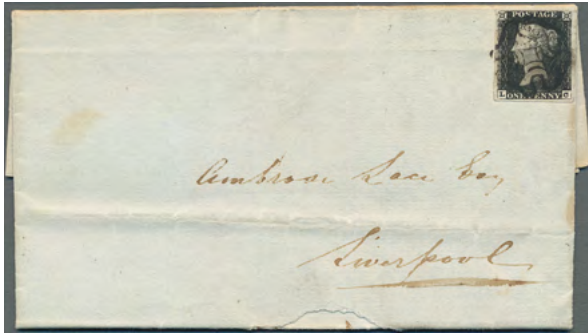 POSTAGE
L ONE PENNY C
Ambrose Lace Esq
Liverpool